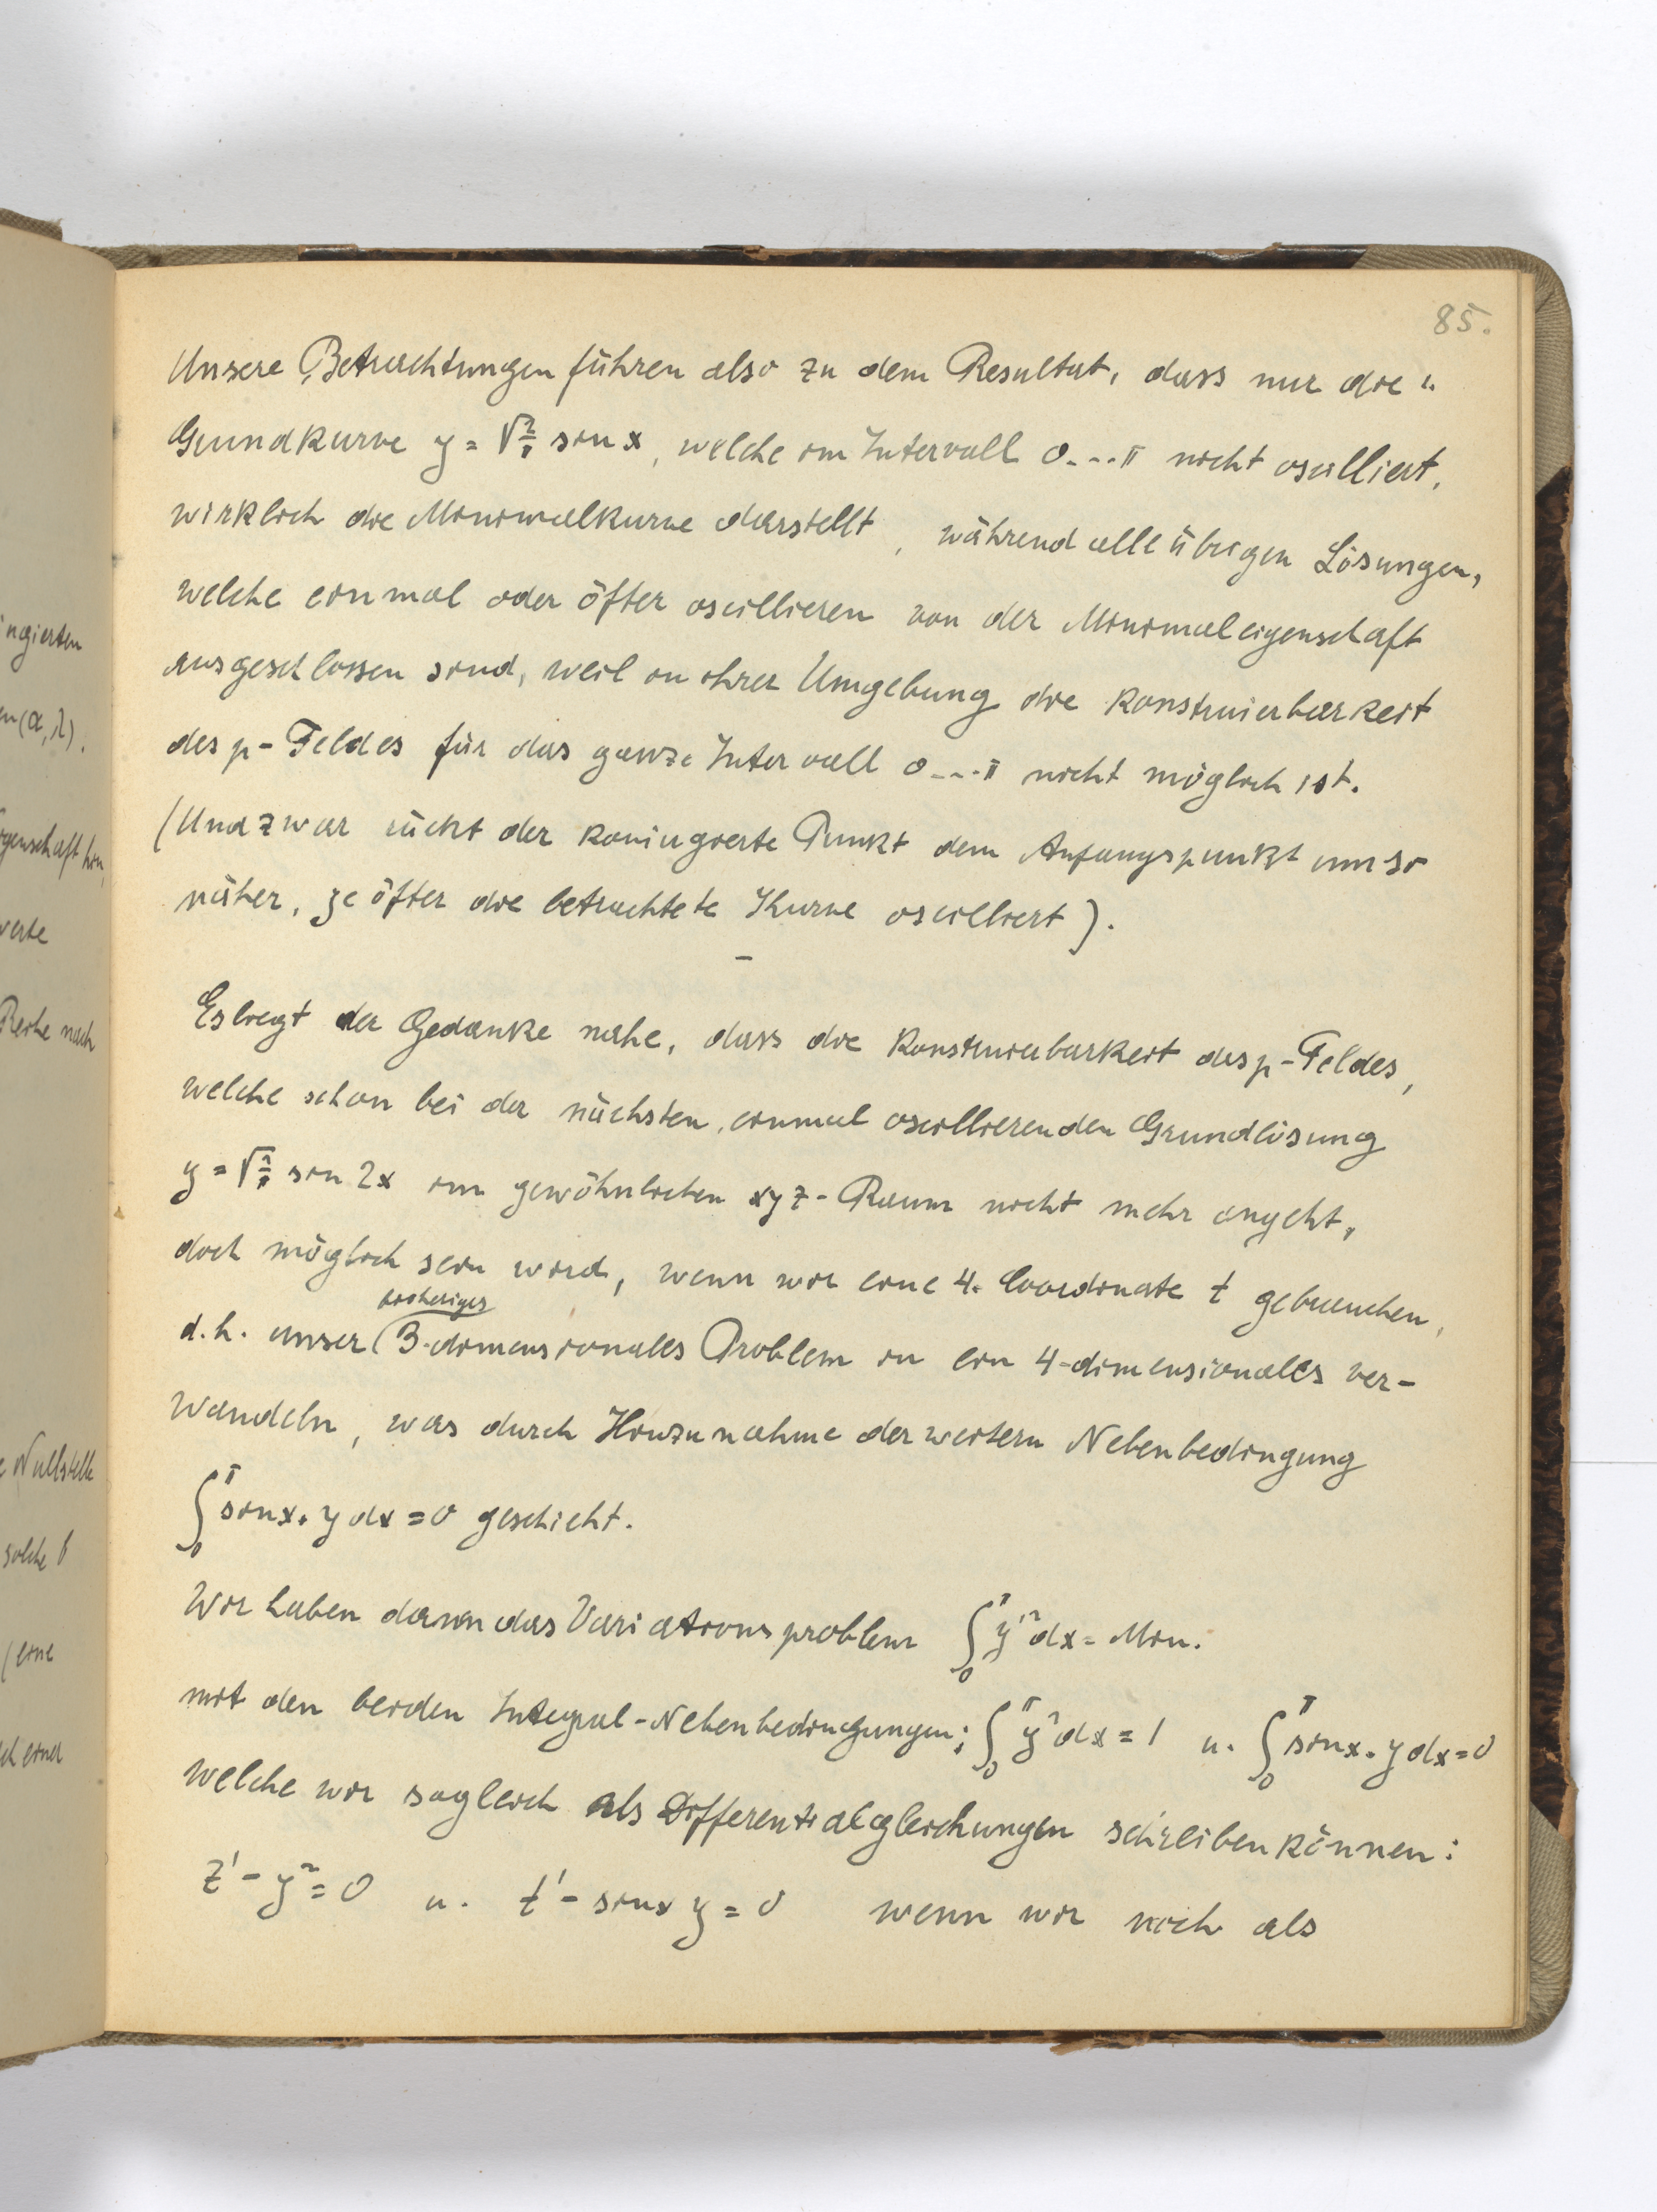 85.
Unsere Betrachtungen führen also zu dem Resultat, dass nur die
Grundkurve y = √2/π sin x, welche im Intervall 0...π nicht oscilliert,
wirklich die Minimalkurve darstellt, während alle übrigen Lösungen,
welche einmal oder öfter oscillieren von der Minimaleigenschaft
ausgeschlossen sind, weil in ihrer Umgebung die Konstruierbarkeit
des p-Feldes für das ganze Intervall 0...π nicht möglich ist.
(Und zwar rückt der konjugierte Punkt dem Anfangspunkt umso
näher, je öfter die betrachtete Kurve oscilliert).
–
Es liegt der Gedanke nahe, dass die Konstruierbarkeit des p-Feldes,
welche schon bei der nächsten, einmal oscillierenden Grundlösung
y = √2/π sin 2x im gewöhnlichen xyz-Raum nicht mehr angeht,
doch möglich sein wird, wenn wir eine 4. Coordinate t gebrauchen,
bisheriges
d.h. unser (3-dimensionales Problem in ein 4-dimensionales ver-
wandeln, was durch Hinzunahme der weitern Nebenbedingung
∫₀^π sin x. y dx = 0 geschieht.
Wir haben dann das Variationsproblem ∫₀^π y'² dx = Min.
mit den beiden Integral-Nebenbedingungen: ∫₀^π y² dx = 1 u. ∫₀^π sin x. y dx = 0
welche wir sogleich als Differentialgleichungen schreiben können:
z' - y² = 0 u. t' - sin x y = 0 wenn wir noch als
ngierten
en (α, λ).
genschaft hin,
werte
Reihe nach
Nullstelle
solche
(eine